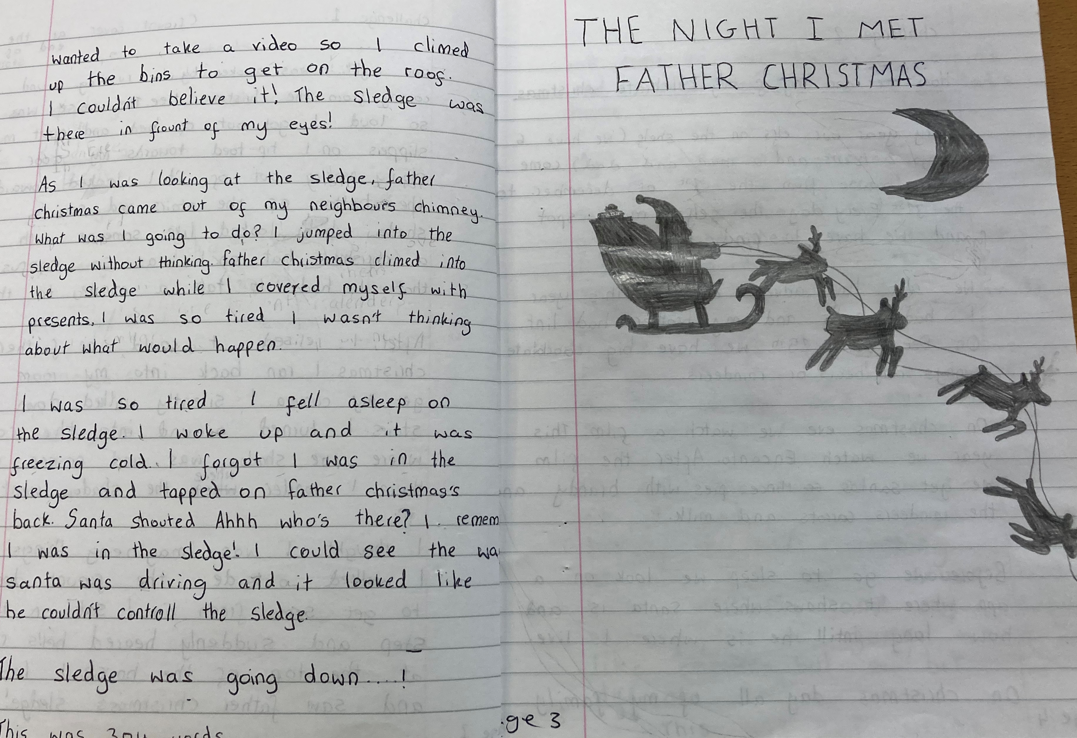 wanted to take a video so I climed
up the bins to get on the roof.
I couldn't believe it! The sledge was
there in frount of my eyes!
As I was looking at the sledge, father
christmas came out of my neighbours chimney.
What was I going to do? I jumped into the
sledge without thinking. father christmas climed into
the sledge while I covered myself with
presents. I was so tired I wasn't thinking
about what would happen.
I was so tired I fell asleep on
the sledge. I woke up and it was
freezing cold. I forgot I was in the
sledge and tapped on father christmas's
back. Santa shouted Ahhh who's there? I remem
I was in the sledge! I could see the wa
santa was driving and it looked like
he couldn't controll the sledge.
The sledge was going down....!
This was
THE NIGHT I MET
FATHER CHRISTMAS
ge 3